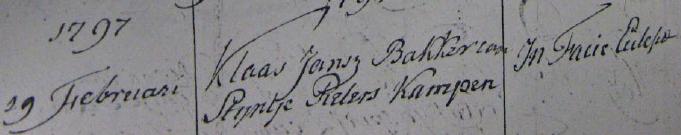 1797
19 Februari
Klaas Jansz Bakker en
Styntje Pieters Kampen
In Facie Eclesie